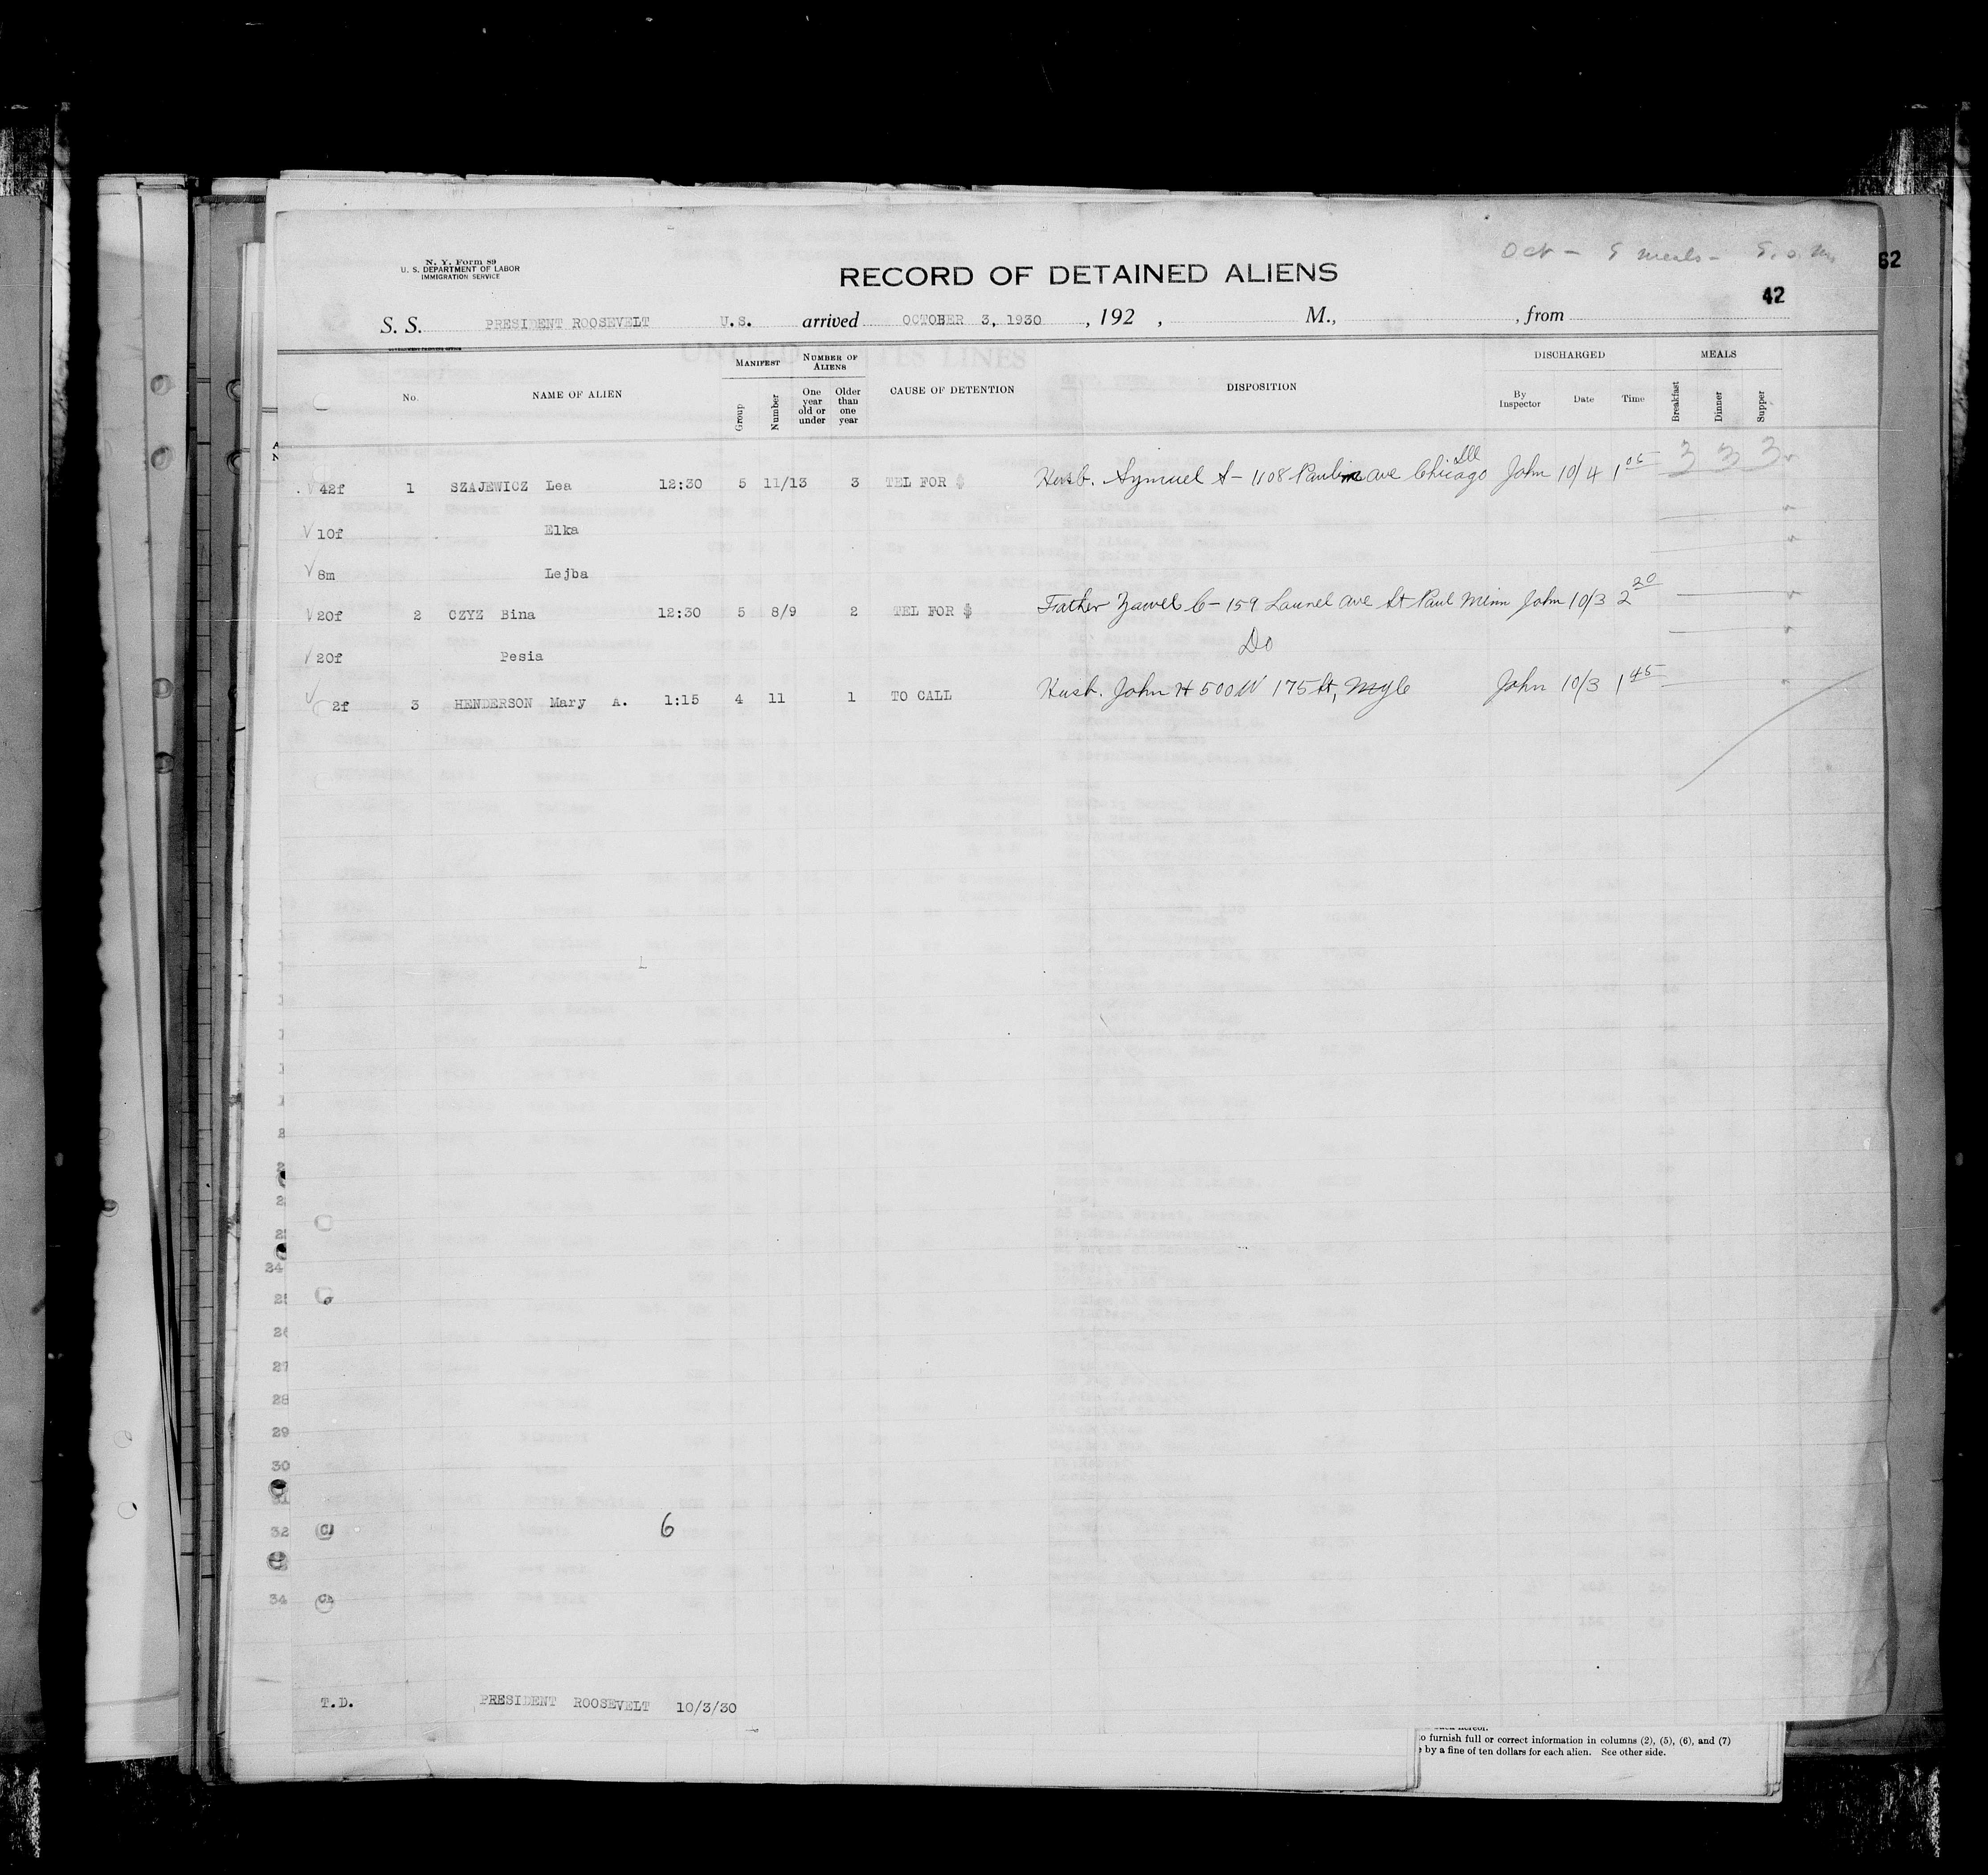 Oct - 9 meals - S.O.M. 62
N. Y. Form 89
U. S. DEPARTMENT OF LABOR
IMMIGRATION SERVICE
RECORD OF DETAINED ALIENS
42
S. S. PRESIDENT ROOSEVELT U.S. arrived OCTOBER 3, 1930 , 192 , M., , from
No. NAME OF ALIEN MANIFEST Group Number NUMBER OF ALIENS One year old or under Older than one year CAUSE OF DETENTION DISPOSITION DISCHARGED By Inspector Date Time MEALS Breakfast Dinner Supper
42f 1 SZAJEWICZ Lea 12:30 5 11/13 3 TEL FOR $ Husb. Szmuel S - 1108 Paulina ave Chicago Ill John 10/4 1 05 3 3 3
10f Elka
8m Lejba
20f 2 CZYZ Bina 12:30 5 8/9 2 TEL FOR $ Father Zawel C - 159 Laurel ave St Paul Minn John 10/3 2 20
20f Pesia Do
2f 3 HENDERSON Mary A. 1:15 4 11 1 TO CALL Husb. John H 500 W 175 St, NYC John 10/3 1 45
24
26
27
28
29
30
31
32
34
6
T.D. PRESIDENT ROOSEVELT 10/3/30
to furnish full or correct information in columns (2), (5), (6), and (7)
by a fine of ten dollars for each alien. See other side.